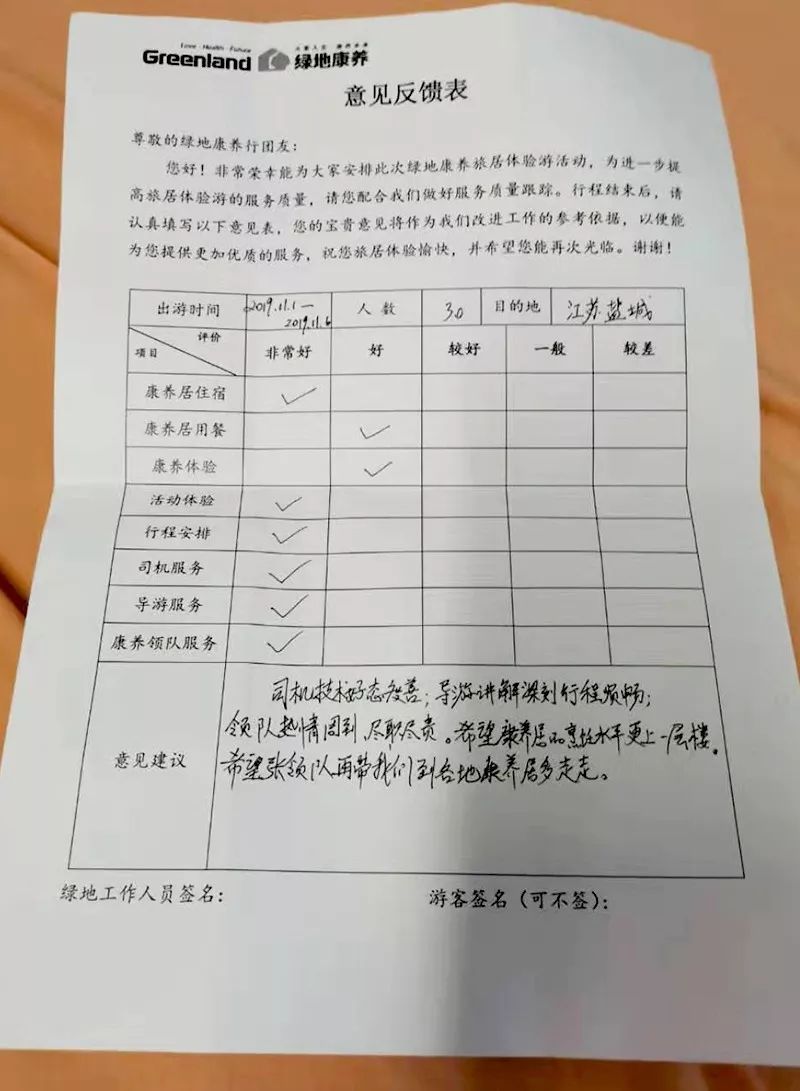 Love · Health · Future
Greenland 绿地康养
意见反馈表
尊敬的绿地康养行团友：
您好！非常荣幸能为大家安排此次绿地康养旅居体验游活动，为进一步提
高旅居体验游的服务质量，请您配合我们做好服务质量跟踪。行程结束后，请
认真填写以下意见表，您的宝贵意见将作为我们改进工作的参考依据，以便能
为您提供更加优质的服务，祝您旅居体验愉快，并希望您能再次光临。谢谢！
出游时间 2019.11.1— 人数 30 目的地 江苏盐城
2019.11.6
评价
项目 非常好 好 较好 一般 较差
康养居住宿 ✓
康养居用餐 ✓
康养体验 ✓
活动体验 ✓
行程安排 ✓
司机服务 ✓
导游服务 ✓
康养领队服务 ✓
意见建议
司机技术好态度善；导游讲解深刻行程顺畅；
领队热情周到，尽职尽责。希望康养居的烹饪水平更上一层楼。
希望张领队再带我们到各地康养居多走走。
绿地工作人员签名： 游客签名（可不签）：